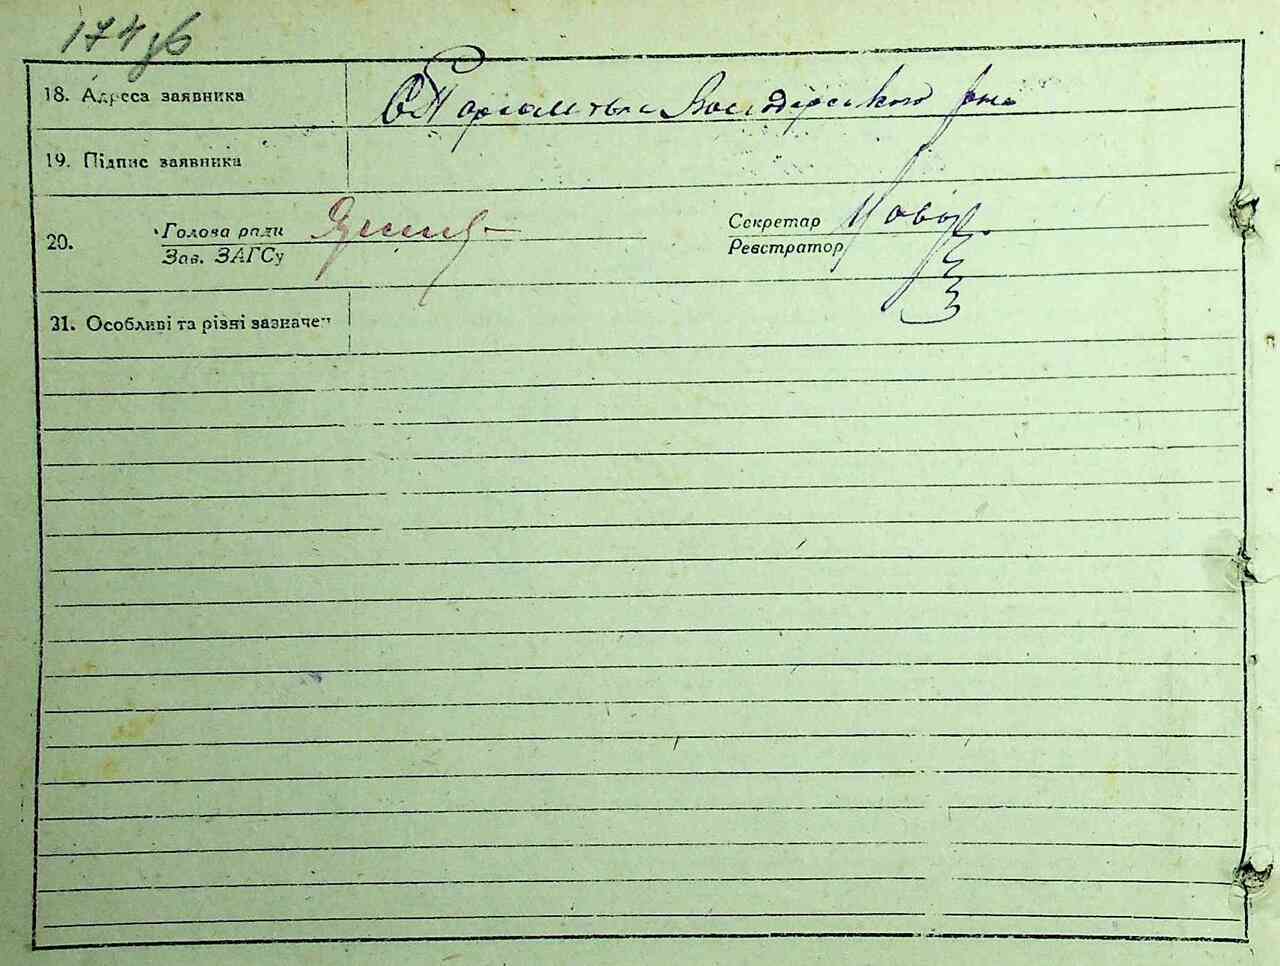 174 зб
18. Адреса заявника Володарського р-на
19. Підпис заявника
20. Голова ради
Зав. ЗАГСу
Секретар
Реєстратор
31. Особливі та різні зазначен